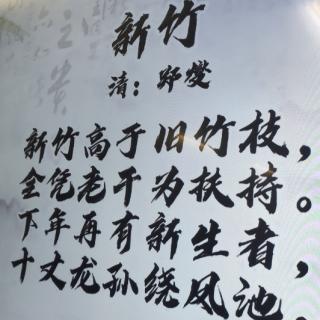 新竹
清：郑燮
新竹高于旧竹枝，
全凭老干为扶持。
下年再有新生者，
十丈龙孙绕凤池。